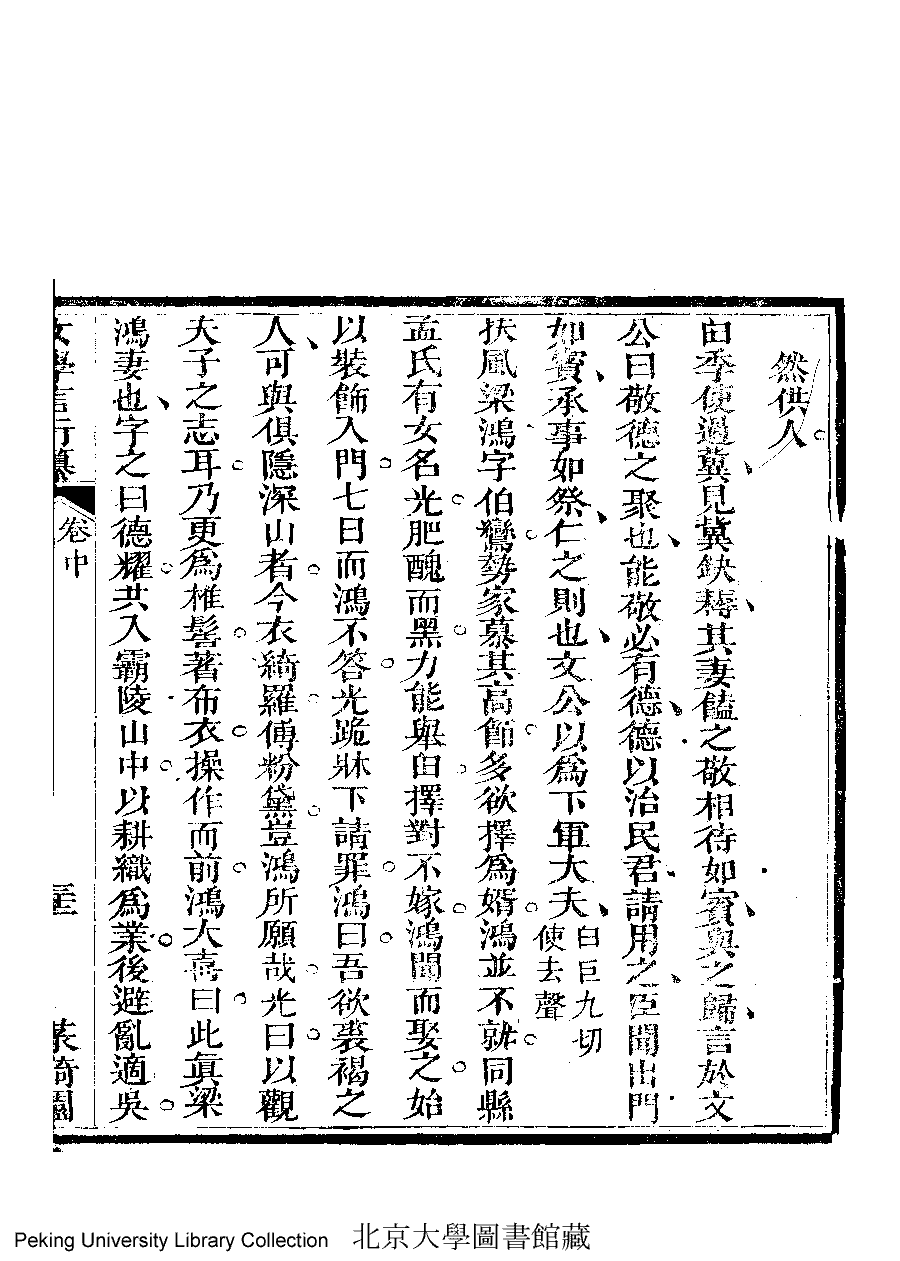 然供人
臼季使過冀見冀缺耨其妻饁之敬相待如賓與之歸言於文
公曰敬德之聚也能敬必有德德以治民君請用之臣聞出門
如賓承事如祭仁之則也文公以為下軍大夫臼巨九切使去聲
扶風梁鴻字伯鸞勢家慕其高節多欲擇為婿鴻並不就同縣
孟氏有女名光肥醜而黑力能舉臼擇對不嫁鴻聞而娶之始
以裝飾入門七日而鴻不答光跪牀下請罪鴻曰吾欲裘褐之
人可與俱隱深山者今衣綺羅傅粉黛豈鴻所願哉光曰以觀
夫子之志耳乃更為椎髻著布衣操作而前鴻大喜曰此眞梁
鴻妻也字之曰德耀共入霸陵山中以耕織為業後避亂適吳
卷中
Peking University Library Collection 北京大學圖書館藏